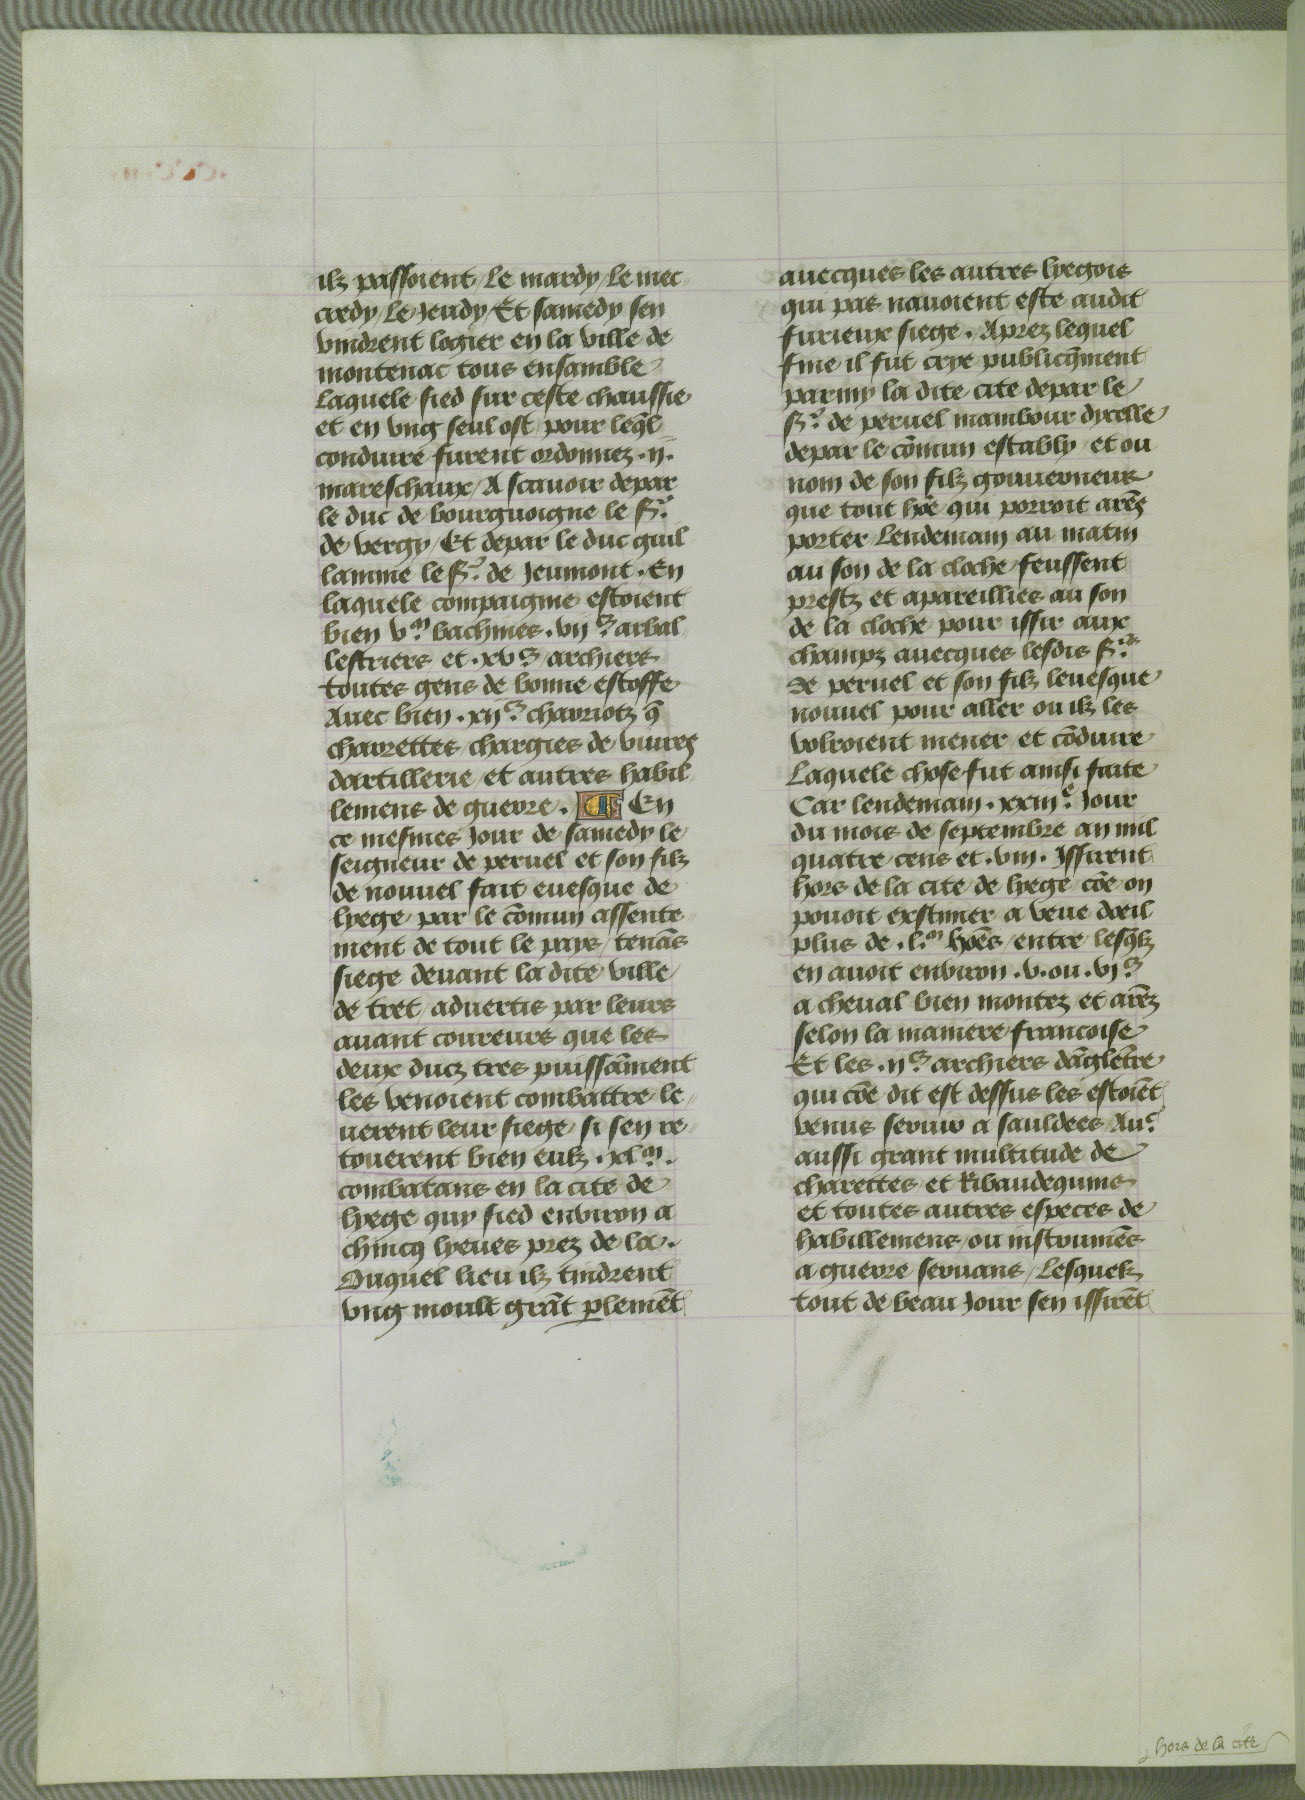 ilz passoient / le mardy / le mec
credy / le Jeudy / Et samedy sen
vindrent logier en la ville de
montenac tous ensamble
laquele sied sur ceste chaussie
et en vng seul ost / pour leq̃l
conduire furent ordonnez .ij.
mareschaux / A scauoir depar
le duc de bourguoigne le sr̃
de vergy / Et depar le duc guil
lamme le sr̃ de Jeumont . En
laquele compaignie estoient
bien vm bachines . vijc arbal
lestriers et .xvc archiers
toutes gens de bonne estoffe
Auec bien .xijc chariotz q̃
charettes chargies de viures
dartillerie / et autres habil
lemens de guerre . En
ce mesmes Jour de samedy le
seigneur de peruel et son filz
de nouuel fait euesque de
lyege / par le cõmun assente
ment de tout le pays / tenãs
siege deuant la dite ville
de tret / aduertis par leurs
auant coureurs que les
deux ducz tres puissãment
les venoient combattre / le
uerent leur siege / si sen re
touerent bien eulz .xlm.
combatans en la cite de
lyege quy sied environ a
chincq lyeues prez de la .
Ouquel lieu ilz tindrent
vng moult grãt plemẽt
auecques les autres lyegois
qui pas nauoient este audit
furieux siege . Aprez lequel
fine il fut crye publicq̃ment
parmy la dite cite depar le
sr̃ de peruel mambour dycelle
depar le cõmun estably / et ou
nom de son filz gouuerneur
que tout hõe qui porroit arẽs
porter / lendemain au matin
au son de la cloche feussent
prestz et apareillies au son
de la cloche pour issir aux
champz auecques lesdis srs
de peruel et son filz leuesque
nouuel pour aller ou ilz les
volroient mener et cõduire
Laquele chose fut ainsi faite
Car lendemain .xxiije Jour
du mois de septembre an mil
quatre cens et .viij. Issirent
hors de la cite de lyege cõe on
pouoit exstimer a veue doeil
plus de .lm hões / entre lesq̃lz
en auoit environ .v. ou .vjc
a cheual bien montez et arẽz
selon la maniere francoise
Et les .ijc archiers dãgletr̃e
qui cõe dit est dessus les estoiẽt
venus seruir a sauldees / Auc
aussi grant multitude de
charettes et Ribaudequins
et toutes autres especes de
habillemens / ou instrumẽs
a guerre seruans / Lesquelz
tout de beau Jour sen issirẽt
hors de la cite